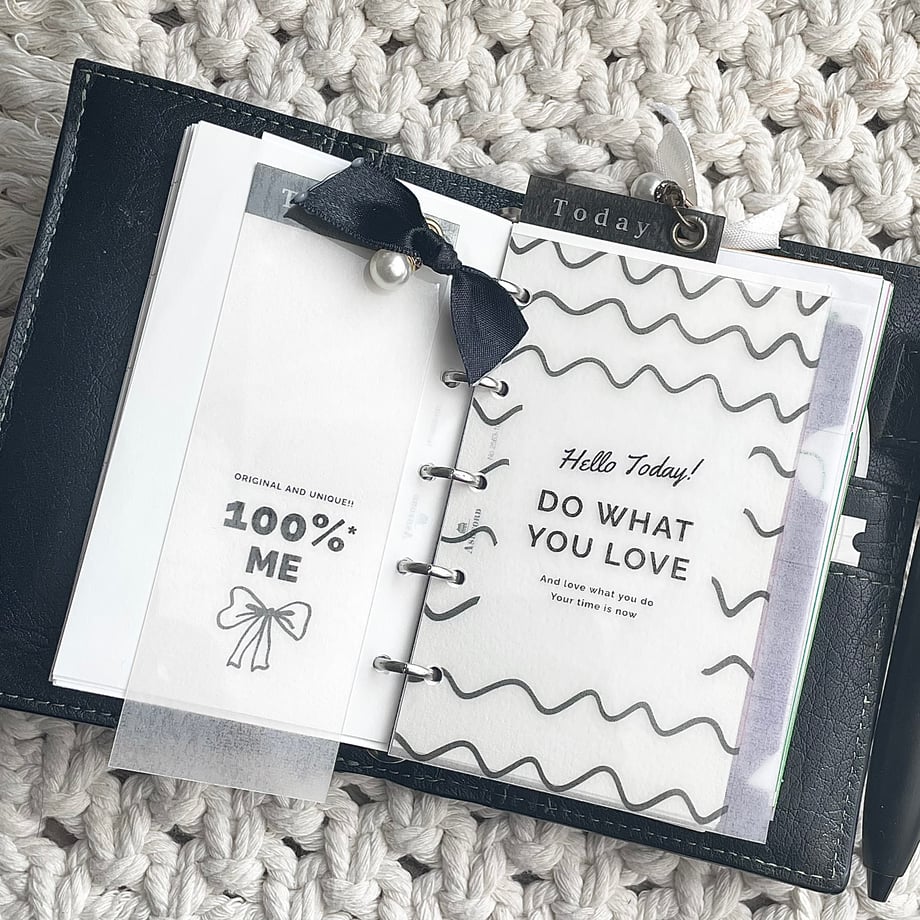 ORIGINAL AND UNIQUE!!
100%*
ME
Today
Hello Today!
DO WHAT
YOU LOVE
And love what you do
Your time is now
ASHFORD